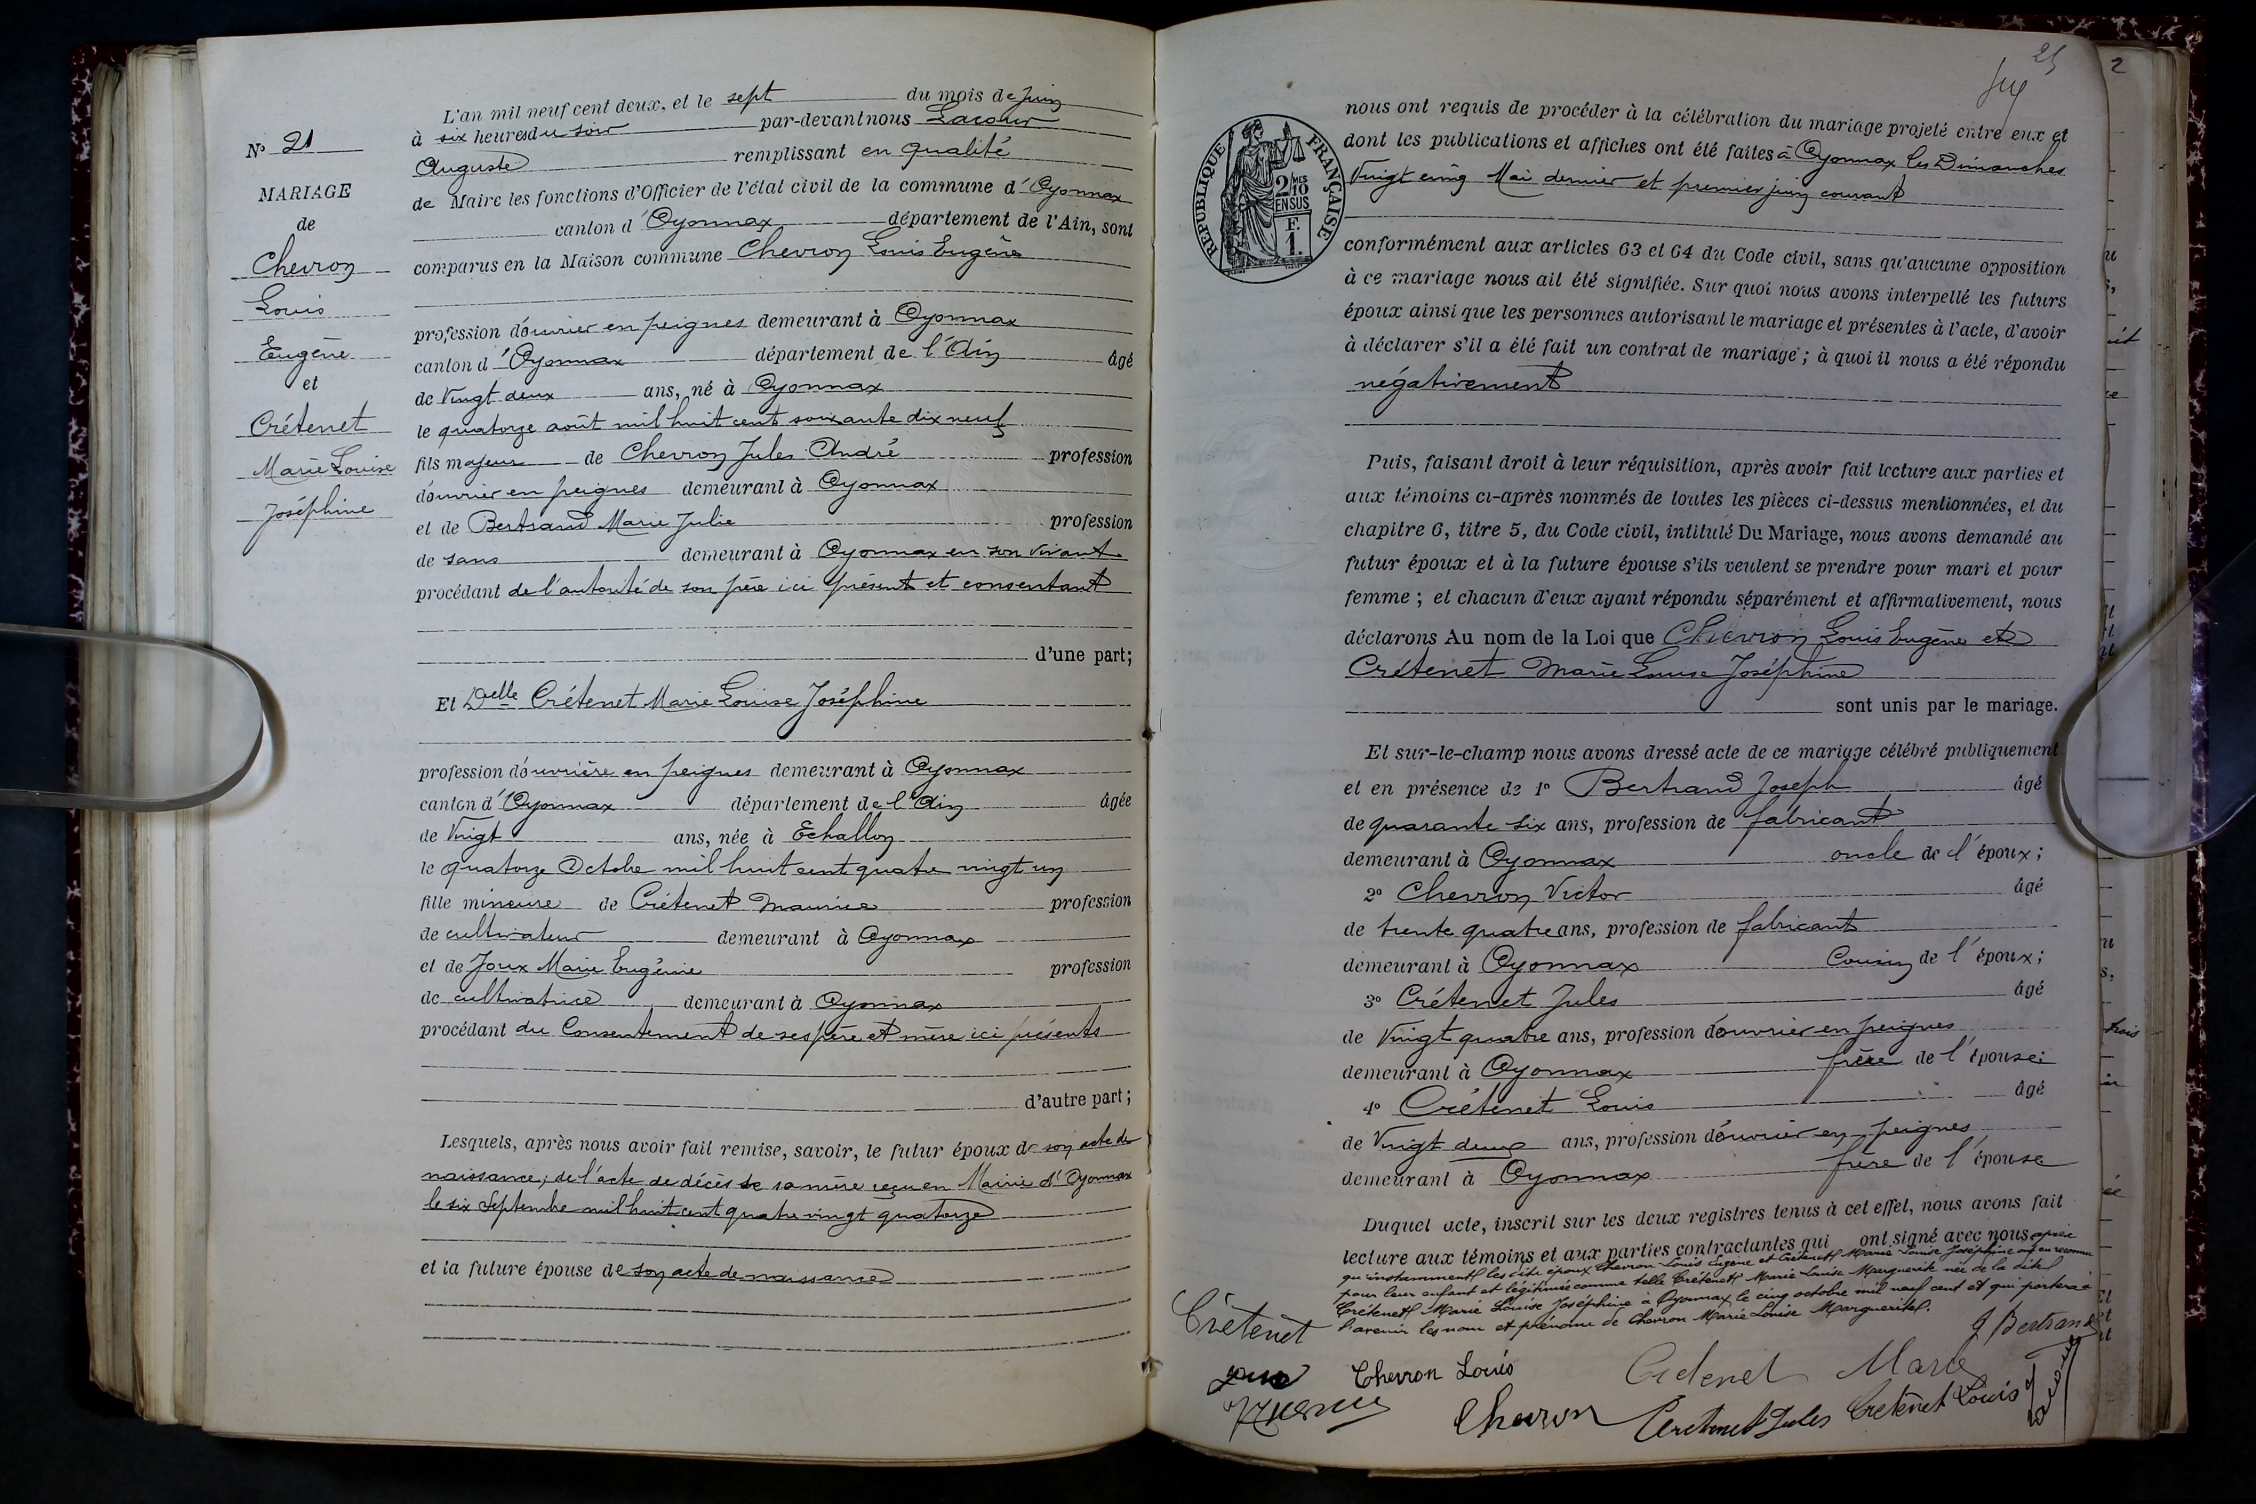 L'an mil neuf cent deux, et le sept du mois de Juin
à six heures du soir par-devant nous Lacour
Auguste remplissant en qualité
de Maire les fonctions d'Officier de l'état civil de la commune d'Oyonnax
canton d'Oyonnax département de l'Ain, sont
comparus en la Maison commune Chevron Louis Eugène
profession d'ouvrier en peignes demeurant à Oyonnax
canton d'Oyonnax département de l'Ain âgé
de Vingt deux ans, né à Oyonnax
le quatorze août mil huit cent soixante dix neuf
fils majeur de Chevron Jules André profession
d'ouvrier en peignes demeurant à Oyonnax
et de Bertrand Marie Julie profession
de sans demeurant à Oyonnax en son vivant
procédant de l'autorité de son père ici présent et consentant
d'une part;
Et Delle Crétenet Marie Louise Joséphine
profession d'ouvrière en peignes demeurant à Oyonnax
canton d'Oyonnax département de l'Ain âgée
de Vingt ans, née à Echallon
le quatorze Octobre mil huit cent quatre vingt un
fille mineure de Crétenet Maurice profession
de cultivateur demeurant à Oyonnax
et de Joux Marie Eugénie profession
de cultivatrice demeurant à Oyonnax
procédant du Consentement de ses père et mère ici présents
d'autre part;
Lesquels, après nous avoir fait remise, savoir, le futur époux de son acte de
naissance, de l'acte de décès de sa mère reçu en Mairie d'Oyonnax
le six Septembre mil huit cent quatre vingt quatorze
et la future épouse de son acte de naissance
No 21
MARIAGE
de
Chevron
Louis
Eugène
et
Crétenet
Marie Louise
Joséphine
25
2
RÉPUBLIQUE FRANÇAISE
2/10 MES
EN SUS
F.
1.
nous ont requis de procéder à la célébration du mariage projeté entre eux et
dont les publications et affiches ont été faites à Oyonnax les Dimanches
Vingt cinq Mai dernier et premier juin courant
conformément aux articles 63 et 64 du Code civil, sans qu'aucune opposition
à ce mariage nous ait été signifiée. Sur quoi nous avons interpellé les futurs
époux ainsi que les personnes autorisant le mariage et présentes à l'acte, d'avoir
à déclarer s'il a été fait un contrat de mariage; à quoi il nous a été répondu
négativement
Puis, faisant droit à leur réquisition, après avoir fait lecture aux parties et
aux témoins ci-après nommés de toutes les pièces ci-dessus mentionnées, et du
chapitre 6, titre 5, du Code civil, intitulé Du Mariage, nous avons demandé au
futur époux et à la future épouse s'ils veulent se prendre pour mari et pour
femme; et chacun d'eux ayant répondu séparément et affirmativement, nous
déclarons Au nom de la Loi que Chevron Louis Eugène et
Crétenet Marie Louise Joséphine
sont unis par le mariage.
Et sur-le-champ nous avons dressé acte de ce mariage célébré publiquement
et en présence de 1o Bertrand Joseph âgé
de quarante six ans, profession de fabricant
demeurant à Oyonnax oncle de l'époux;
2o Chevron Victor âgé
de trente quatre ans, profession de fabricant
demeurant à Oyonnax Cousin de l'époux;
3o Crétenet Jules âgé
de Vingt quatre ans, profession d'ouvrier en peignes
demeurant à Oyonnax frère de l'épouse;
4o Crétenet Louis âgé
de Vingt deux ans, profession d'ouvrier en peignes
demeurant à Oyonnax frère de l'épouse
Duquel acte, inscrit sur les deux registres tenus à cet effet, nous avons fait
lecture aux témoins et aux parties contractantes qui ont signé avec nous après
que instamment les dits époux Chevron Louis Eugène et Crétenet Marie Louise Joséphine ont eu reconnu
pour leur enfant et légitimée comme telle Crétenet Marie Louise Marguerite née de la dite
Crétenet Marie Louise Joséphine à Oyonnax le cinq octobre mil neuf cent et qui portera à
l'avenir les nom et prénoms de Chevron Marie Louise Marguerite.
Crétenet
J Bertrand
Chevron Louis
Crétenet Marie
Chevron
Crétenet Jules
Crétenet Louis